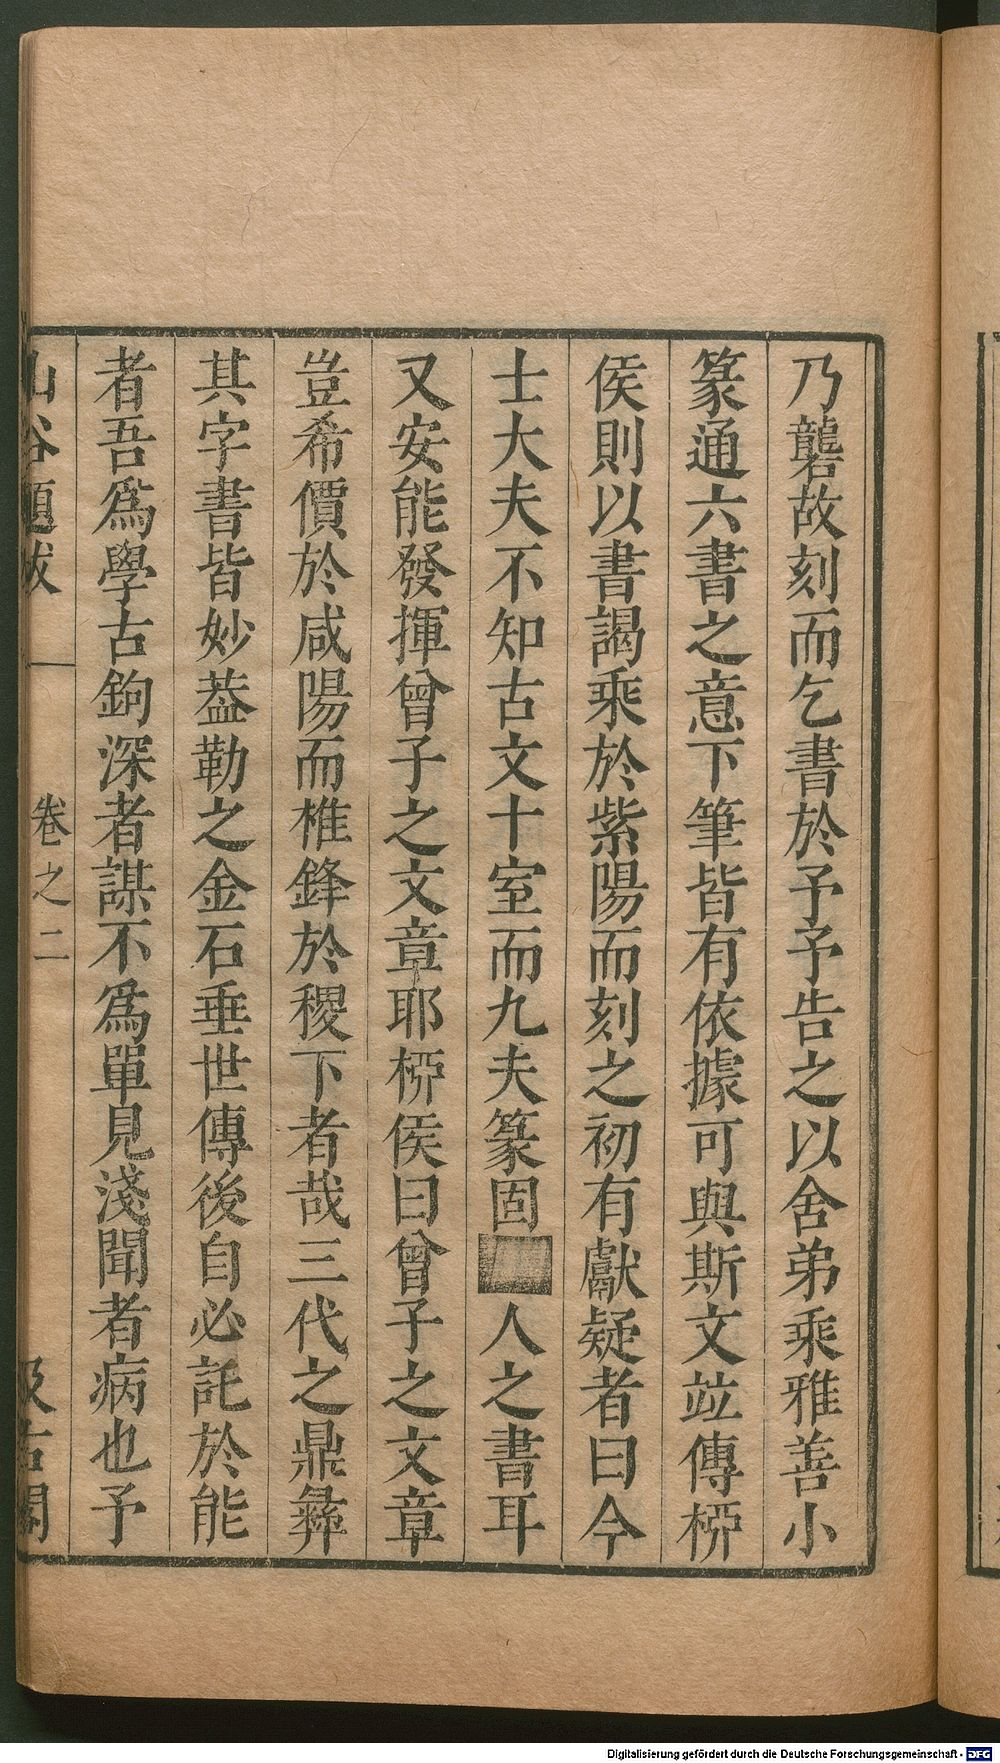 乃礱故刻而乞書於予予告之以舍弟乘雅善小
篆通六書之意下筆皆有依據可與斯文竝傳桺
侯則以書謁乘於紫陽而刻之初有獻疑者曰今
士大夫不知古文十室而九夫篆固人之書耳
又安能發揮曾子之文章耶桺侯曰曾子之文章
豈希價於咸陽而椎鋒於稷下者哉三代之鼎彝
其字書皆妙葢勒之金石垂世傳後自必託於能
者吾爲學古鉤深者謀不爲單見淺聞者病也予
山谷題跋 卷之二 汲古閣
Digitalisierung gefördert durch die Deutsche Forschungsgemeinschaft - DFG